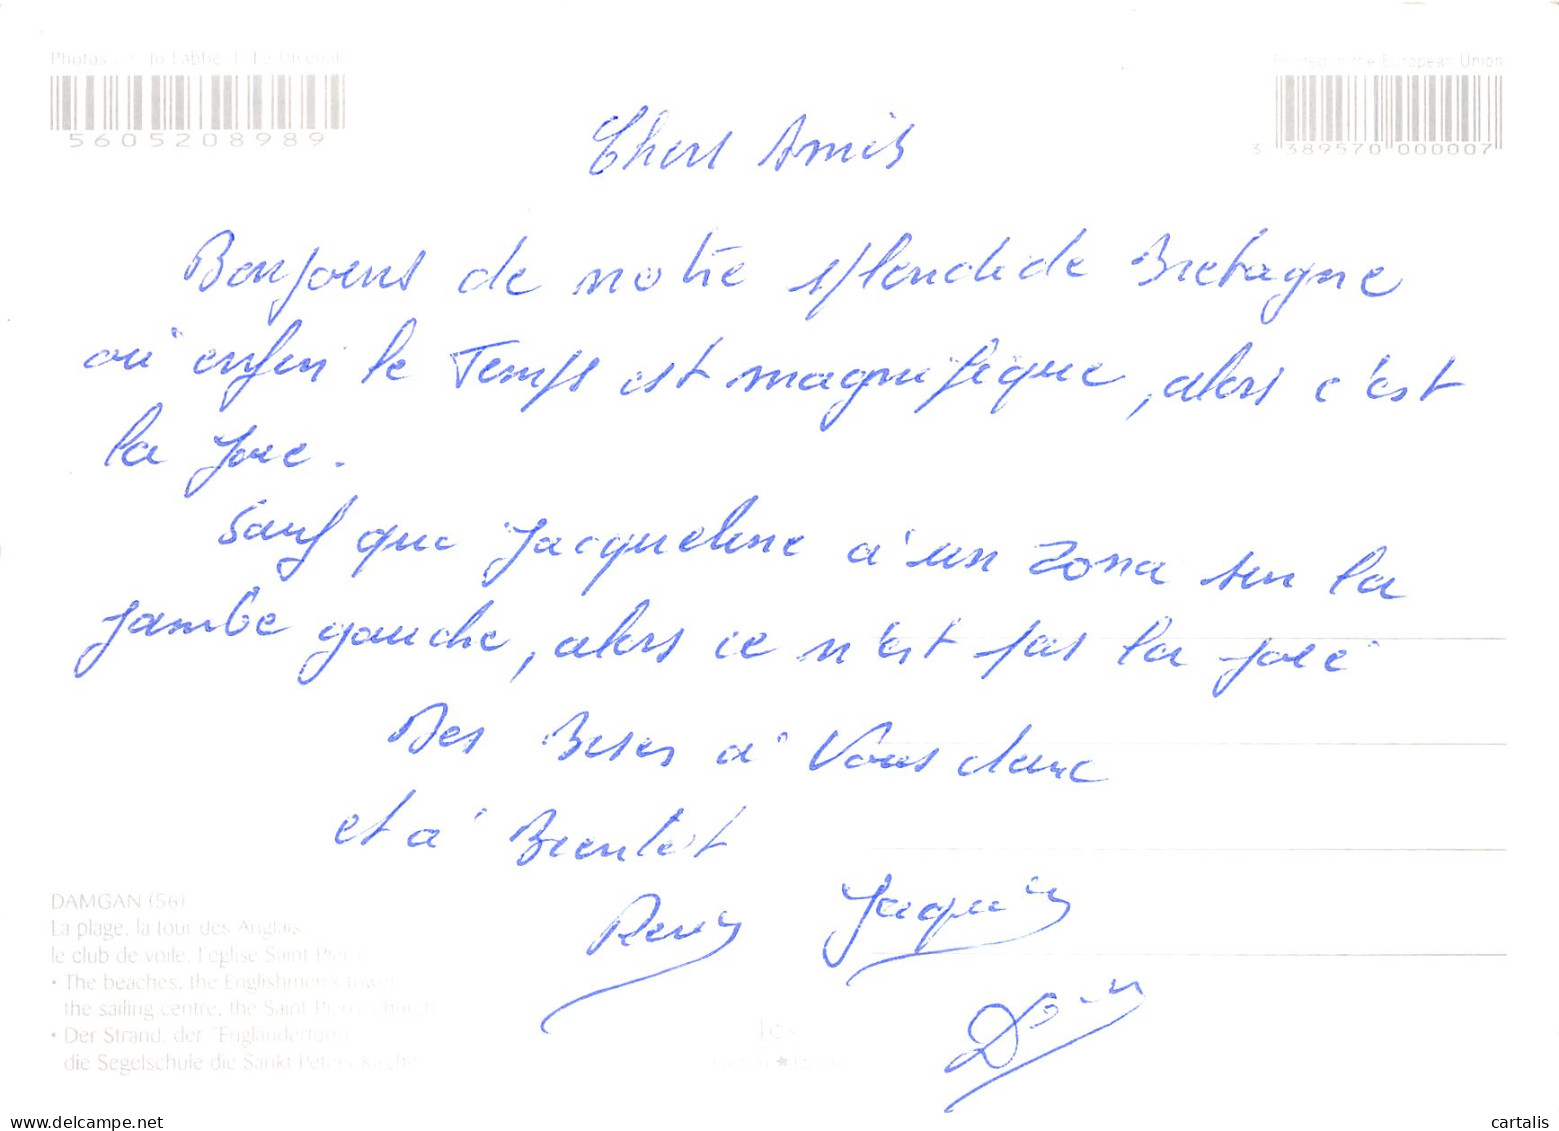 Photos : Jo Labbé
Printed in the European Union
5605208989
3 389570 000007
Chers Amis
Bonjours de notre splendide Bretagne
où enfin le Temps est magnifique, alors c'est
la joie.
Sauf que Jacqueline à un zona sur la
jambe gauche, alors ce n'est pas la joie
Des Bises à Vous deux
et à Bientôt
Jacqu
DAMGAN (56)
La plage, la tour des Anglais,
le club de voile, l'église Saint Pierre
• The beaches, the Englishmen's tower,
the sailing centre, the Saint Pierre church
• Der Strand, der "Engländerturm"
die Segelschule die Sankt Peters Kirche
delcampe.net
cartalis